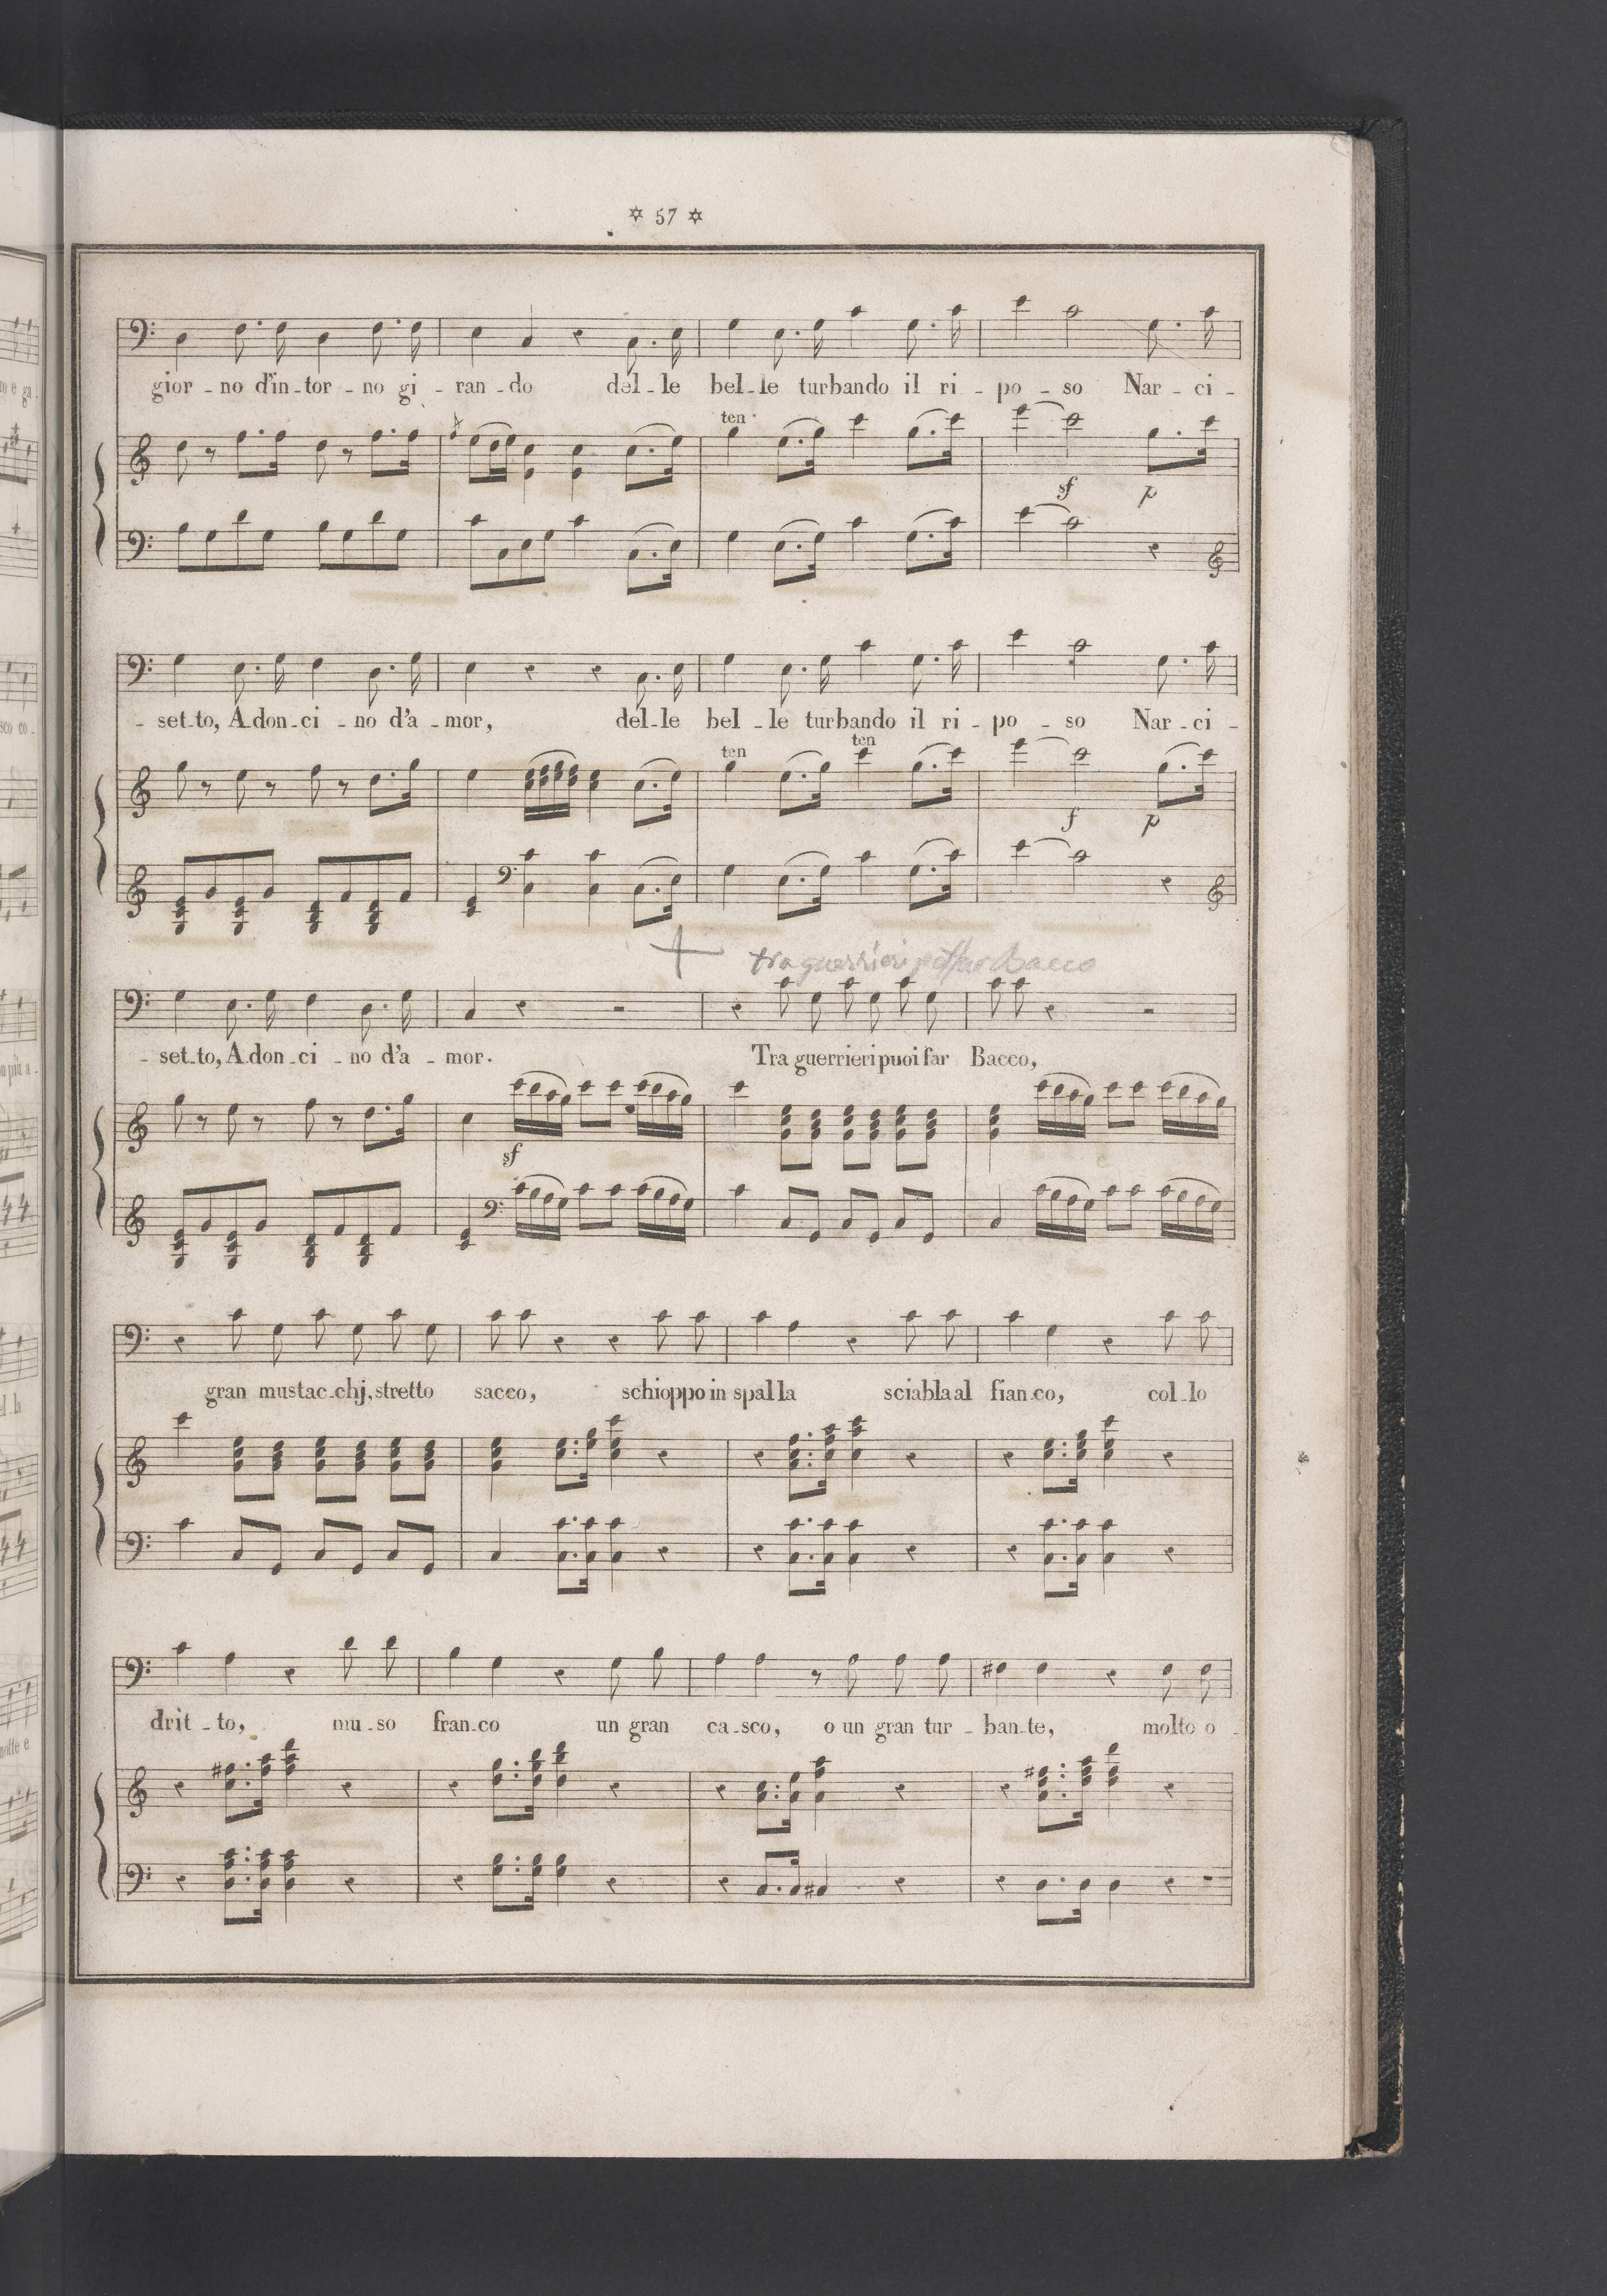 57
gior - no d'in - tor - no gi - ran - do del - le bel - le turbando il ri - po - so Nar - ci -
ten
sf p
- set - to, A - don - ci - no d'a - mor, del - le bel - le turbando il ri - po - so Nar - ci -
ten ten
f p
tra guerrieri
- set - to, A - don - ci - no d'a - mor. Tra guerrieri puoi far Bacco,
sf
gran mustac - chj, stretto sacco, schioppo in spalla sciabla al fian - co, col - lo
drit - to, mu - so fran - co un gran ca - sco, o un gran tur - ban - te, molto o -